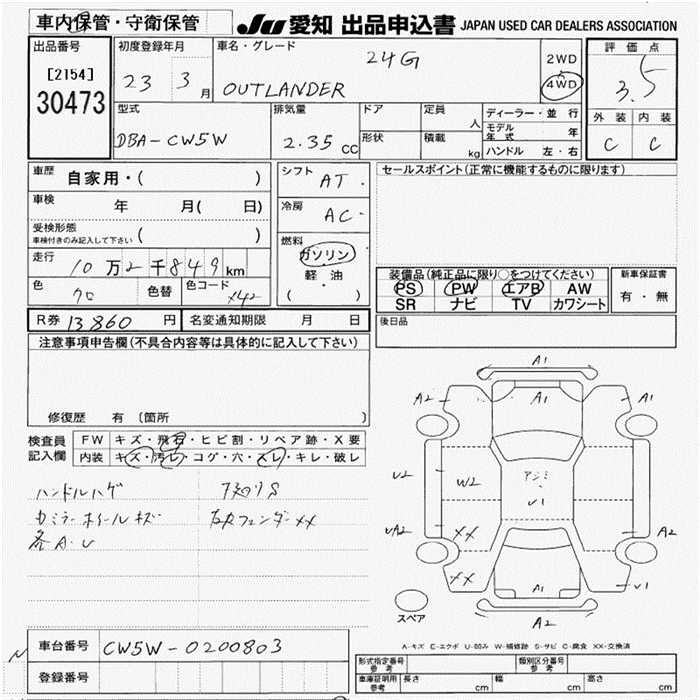 車内保管・守衛保管
JU 愛知 出品申込書 JAPAN USED CAR DEALERS ASSOCIATION
出品番号
[2154]
30473
初度登録年月
23 3月
車名・グレード
24G
OUTLANDER
2WD
4WD
評価点
3.5
外装 内装
C C
型式
DBA-CW5W
排気量
2.35cc
ドア
形状
定員
人
積載
kg
ディーラー・並行
モデル年式 年
ハンドル 左・右
車歴
自家用・( )
車検
年 月( 日)
受検形態
車検付きのみ記入して下さい ( )
走行
10万2千849km
色
クロ
色替
色コード
X42
シフト
AT
冷房
AC
燃料
ガソリン
軽・油
( ・ )
セールスポイント(正常に機能するものに限ります)
装備品(純正品に限り○をつけてください)
PS PW エアB AW
SR ナビ TV カワシート
新車保証書
有・無
後日品
R券 13,860 円
名変通知期限 月 日
注意事項申告欄(不具合内容等は具体的に記入して下さい)
修復歴 有〔箇所 〕
検査員記入欄
FW キズ・飛石・ヒビ割・リペア跡・X要
内装 キズ・汚レ・コゲ・穴・スレ・キレ・破レ
ハンドルハゲ
下回りS
ホイールキズ
フェンダーXX
各A・U
A1
A2 A1 A1
U2 W2 U1
UA2 XX A2
XX A1 U1
A2
スペア
A-キズ E-エクボ U-凹み W-補修跡 S-サビ C-腐食 XX-交換済
車台番号
CW5W-0200803
登録番号
形式指定番号
参考
類別区分番号
参考
車庫証明用
参考
長さ cm 幅 cm 高さ cm